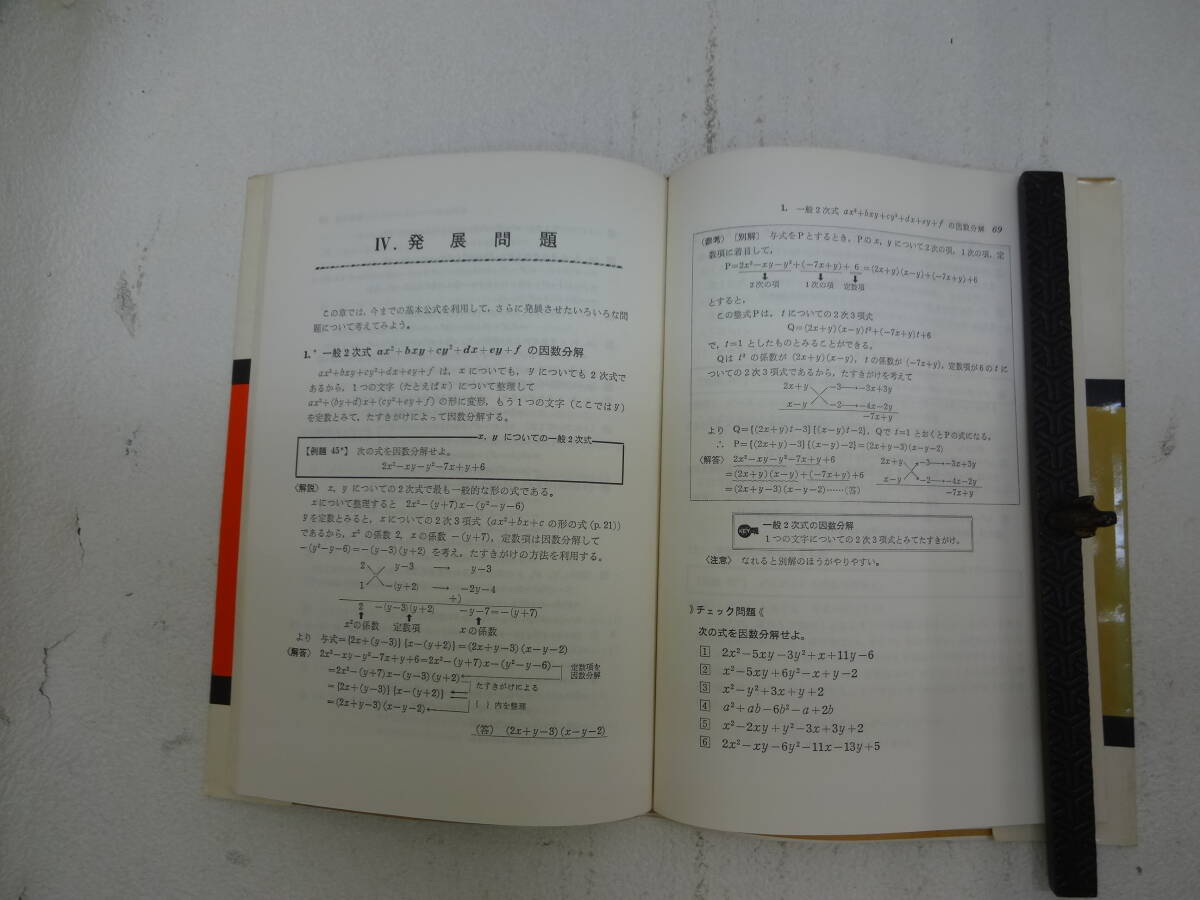 Ⅳ. 発展問題
この章では、今までの基本公式を利用して、さらに発展させたいろいろな問
題について考えてみよう。
1.* 一般2次式 ax²+bxy+cy²+dx+ey+f の因数分解
ax²+bxy+cy²+dx+ey+f は、xについても、yについても2次式で
あるから、1つの文字(たとえばx)について整理して
ax²+(by+d)x+(cy²+ey+f)の形に変形、もう1つの文字(ここではy)
を定数とみて、たすきがけによって因数分解する。
x, y についての一般2次式
【例題 45*】 次の式を因数分解せよ。
2x²−xy−y²−7x+y+6
〈解説〉 x, y についての2次式で最も一般的な形の式である。
xについて整理すると 2x²−(y+7)x−(y²−y−6)
yを定数とみると、xについての2次3項式(ax²+bx+c の形の式(p.21))
であるから、x² の係数2, xの係数 −(y+7), 定数項は因数分解して
−(y²−y−6)=−(y−3)(y+2) を考え、たすきがけの方法を利用する。
2 y−3 → y−3
1 −(y+2) → −2y−4
+)
2 −(y−3)(y+2) −y−7=−(y+7)
x²の係数 定数項 xの係数
より 与式={2x+(y−3)}{x−(y+2)}=(2x+y−3)(x−y−2)
〈解答〉 2x²−xy−y²−7x+y+6=2x²−(y+7)x−(y²−y−6) 定数項を
因数分解
=2x²−(y+7)x−(y−3)(y+2)
={2x+(y−3)}{x−(y+2)} たすきがけによる
=(2x+y−3)(x−y−2) { }内を整理
(答) (2x+y−3)(x−y−2)
1. 一般2次式 ax²+bxy+cy²+dx+ey+f の因数分解 69
〈参考〉 〔別解〕 与式をPとするとき、Pのx, yについて2次の項、1次の項、定
数項に着目して、
P=2x²−xy−y²+(−7x+y)+6=(2x+y)(x−y)+(−7x+y)+6
2次の項 1次の項 定数項
とすると、
この整式Pは、tについての2次3項式
Q=(2x+y)(x−y)t²+(−7x+y)t+6
で、t=1 としたものとみることができる。
Qは t² の係数が (2x+y)(x−y), tの係数が (−7x+y), 定数項が6のtに
ついての2次3項式であるから、たすきがけを考えて
2x+y −3→−3x+3y
x−y −2→−4x−2y
−7x+y
より Q={(2x+y)t−3}{(x−y)t−2}, Qで t=1 とおくとPの式になる。
∴ P={(2x+y)−3}{(x−y)−2}=(2x+y−3)(x−y−2)
〈解答〉 2x²−xy−y²−7x+y+6
=(2x+y)(x−y)+(−7x+y)+6
=(2x+y−3)(x−y−2)……(答)
2x+y −3→−3x+3y
x−y −2→−4x−2y
−7x+y
KEY 一般2次式の因数分解
1つの文字についての2次3項式とみてたすきがけ。
〈注意〉 なれると別解のほうがやりやすい。
》チェック問題《
次の式を因数分解せよ。
1 2x²−5xy−3y²+x+11y−6
2 x²−5xy+6y²−x+y−2
3 x²−y²+3x+y+2
4 a²+ab−6b²−a+2b
5 x²−2xy+y²−3x+3y+2
6 2x²−xy−6y²−11x−13y+5